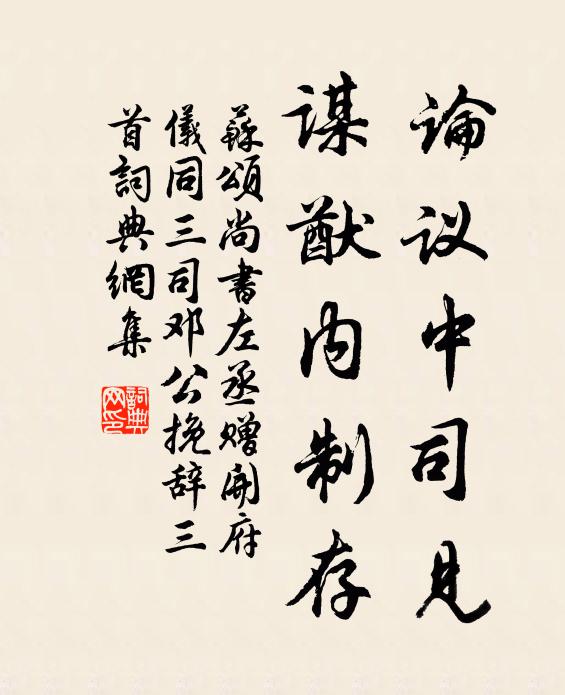 論议中司見
謀猷内制存
蘇頌尚書左丞贈開府
儀同三司邓公挽辞三
首詞典網集
詞典网印